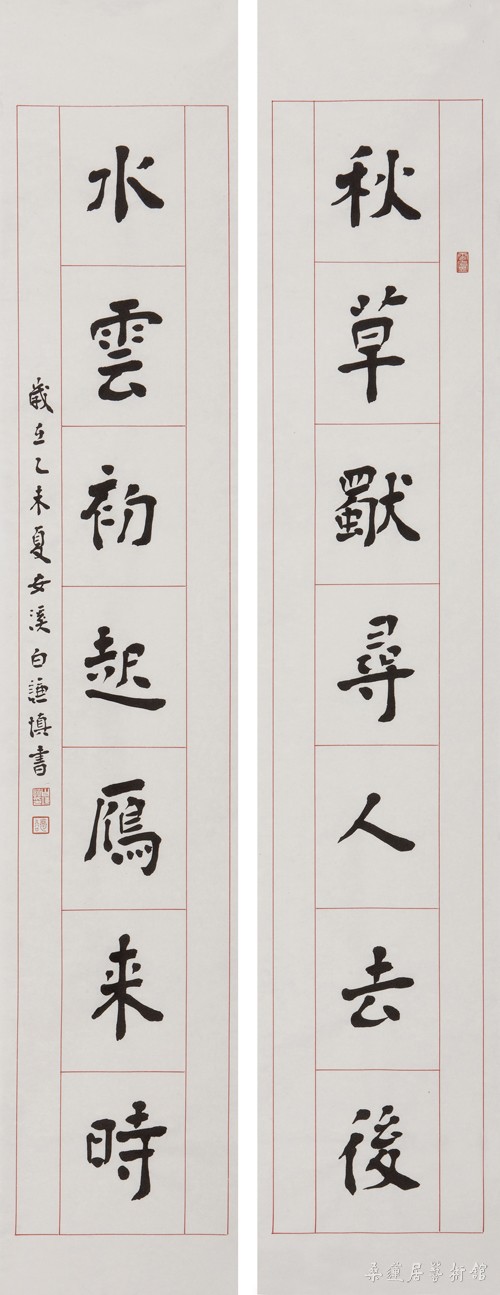 秋草獨尋人去後
水雲初起鴈来時
歲在乙未夏安溪白謙慎書
桑蓮居藝術館